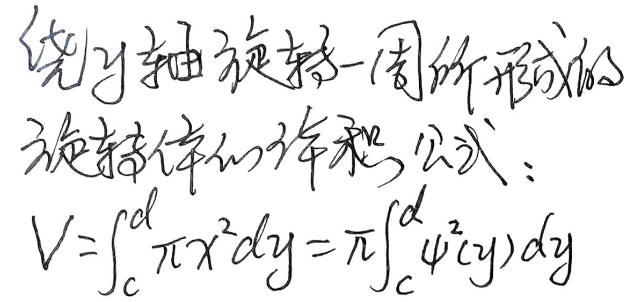 绕y轴旋转一周所形成的
旋转体的体积公式：
V=∫_c^d πx²dy=π∫_c^d ψ²(y)dy